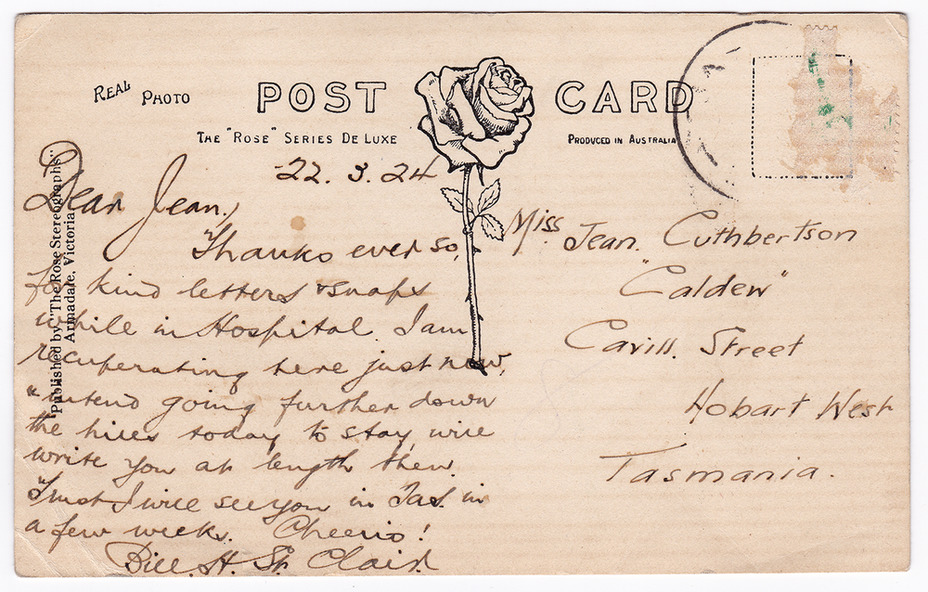 REAL PHOTO
POST CARD
THE "ROSE" SERIES DE LUXE
PRODUCED IN AUSTRALIA
Published by "The Rose Stereographs,"
Armadale, Victoria
22.3.24
Dear Jean,
Thanks ever so,
for kind letters & snaps
while in Hospital. I am
recuperating here just now,
& intend going further down
the hills today to stay, will
write you at length then.
Trust I will see you in Tas. in
a few weeks. Cheerio!
Bill H. St. Clair.
Miss Jean. Cuthbertson
"Calder"
Cavill. Street
Hobart West
Tasmania.